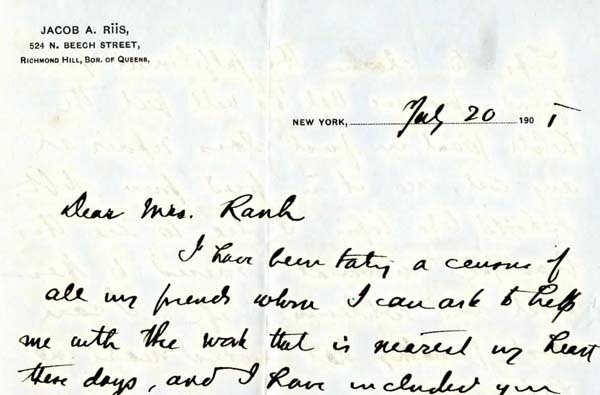 JACOB A. RIIS,
524 N. BEECH STREET,
RICHMOND HILL, BOR. OF QUEENS,
NEW YORK, July 20 190
Dear Mrs.
I have been taking a census of
all my friends whom I can ask to help
me with the work that is nearest my heart
these days, and I have included you